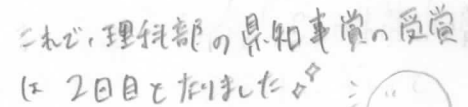 これで、理科部の県知事賞の受賞
は 2回目となりました